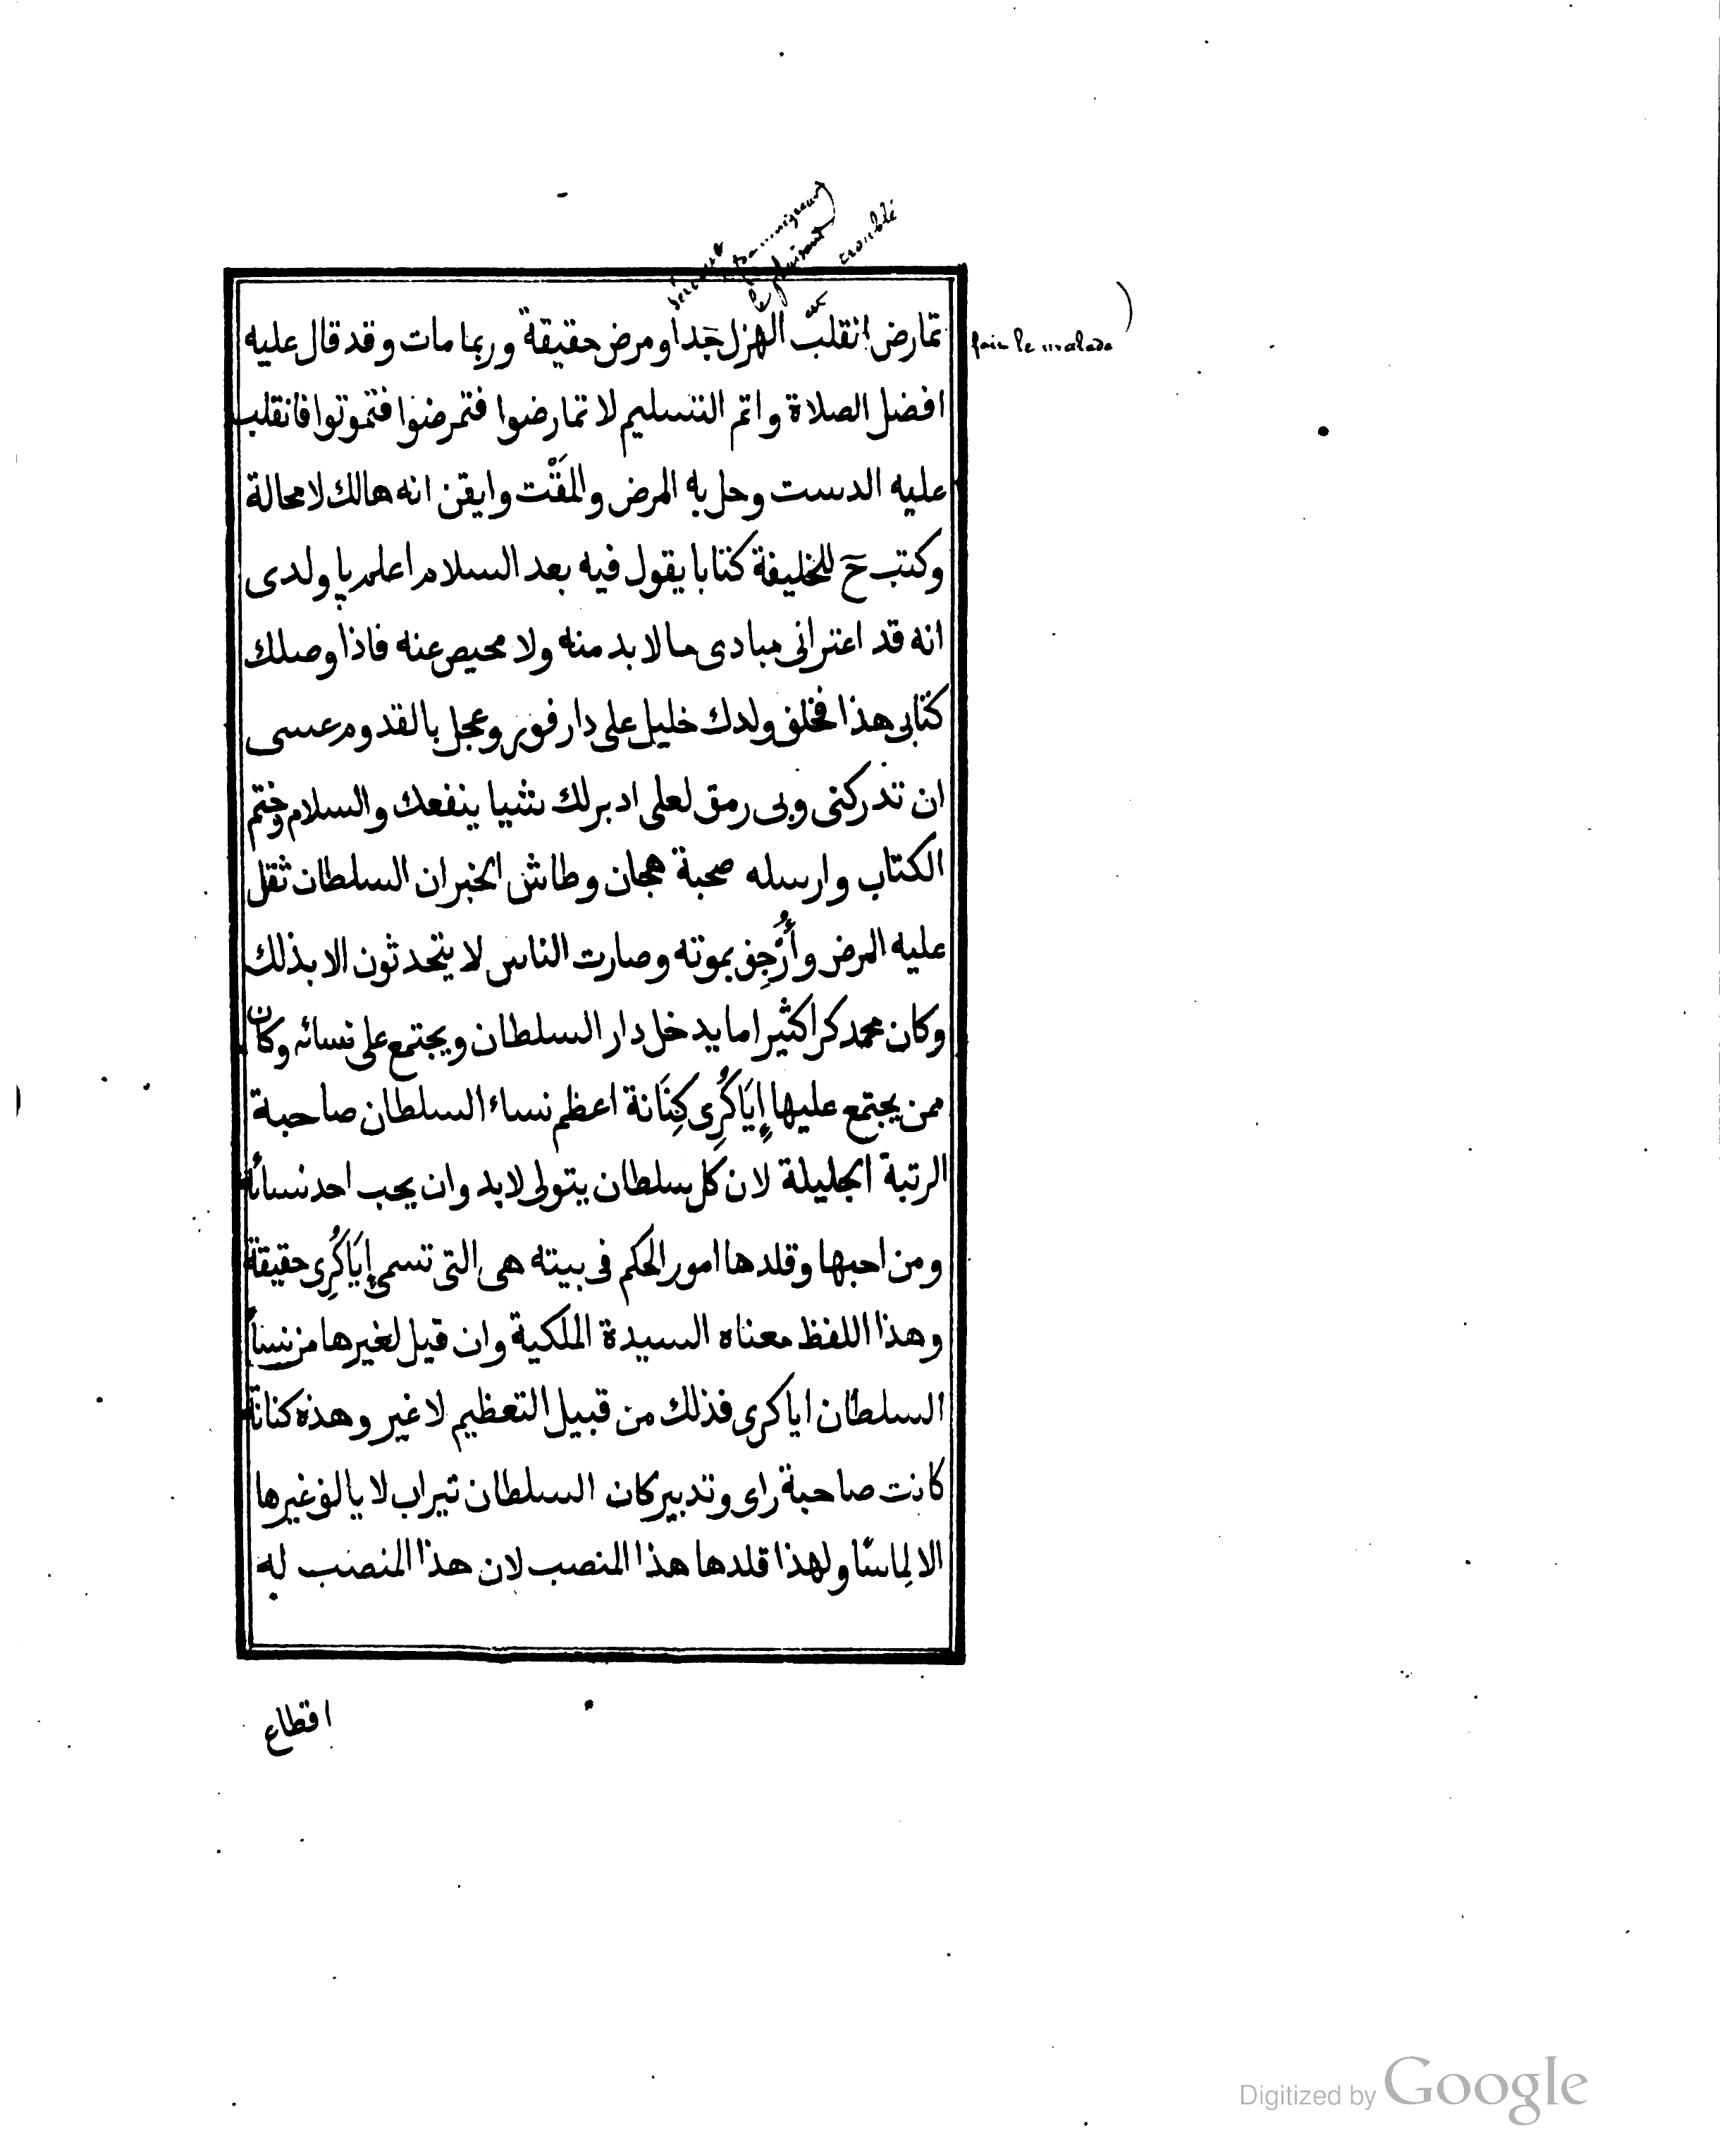 تمارض انقلبّ الهزل جَدا ومرض حقيقة وربما مات وقد قال عليه
faire le malade
افضل الصلاة واتم التسليم لا تمارضوا فتمرضوا فتموتوا فانقلب
عليه الدست وحل به المرض والمَقْت وايقن انه هالك لا محالة
وكتب حَ للخليفة كتابا يقول فيه بعد السلام اعلم يا ولدى
انه قد اعترانى مبادى ما لابد منه ولا محيص عنه فاذا وصلك
كتابى هذا فخلف ولدك خليل على دار فور وعجل بالقدوم عسى
ان تدركنى وبى رمق لعلى ادبر لك شيا ينفعك والسلام وختم
الكتاب وارسله صحبة هجان وطاش الخبر ان السلطان ثقل
عليه المرض وأُرْجِف بموته وصارت الناس لا يتحدثون الا بذلك
وكان محمد كرا كثيرا ما يدخل دار السلطان ويجتمع على نسائه وكان
ممن يجتمع عليها إِيَاكُرِى كِنَانة اعظم نساء السلطان صاحبة
الرتبة الجليلة لان كل سلطان يتولى لابد وان يحب احد نسائه
ومن احبها وقلدها امور الحكم فى بيته هى التى تسمى إِيَاكُرِى حقيقة
وهذا اللفظ معناه السيدة الملكية وان قيل لغيرها من نساء
السلطان اياكرى فذلك من قبيل التعظيم لا غير وهذه كنانة
كانت صاحبة راى وتدبير كان السلطان تيراب لا يالف غيرها
الا لِماسّا ولهذا قلدها هذا المنصب لان هذا المنصب له
اقطاع
Digitized by Google